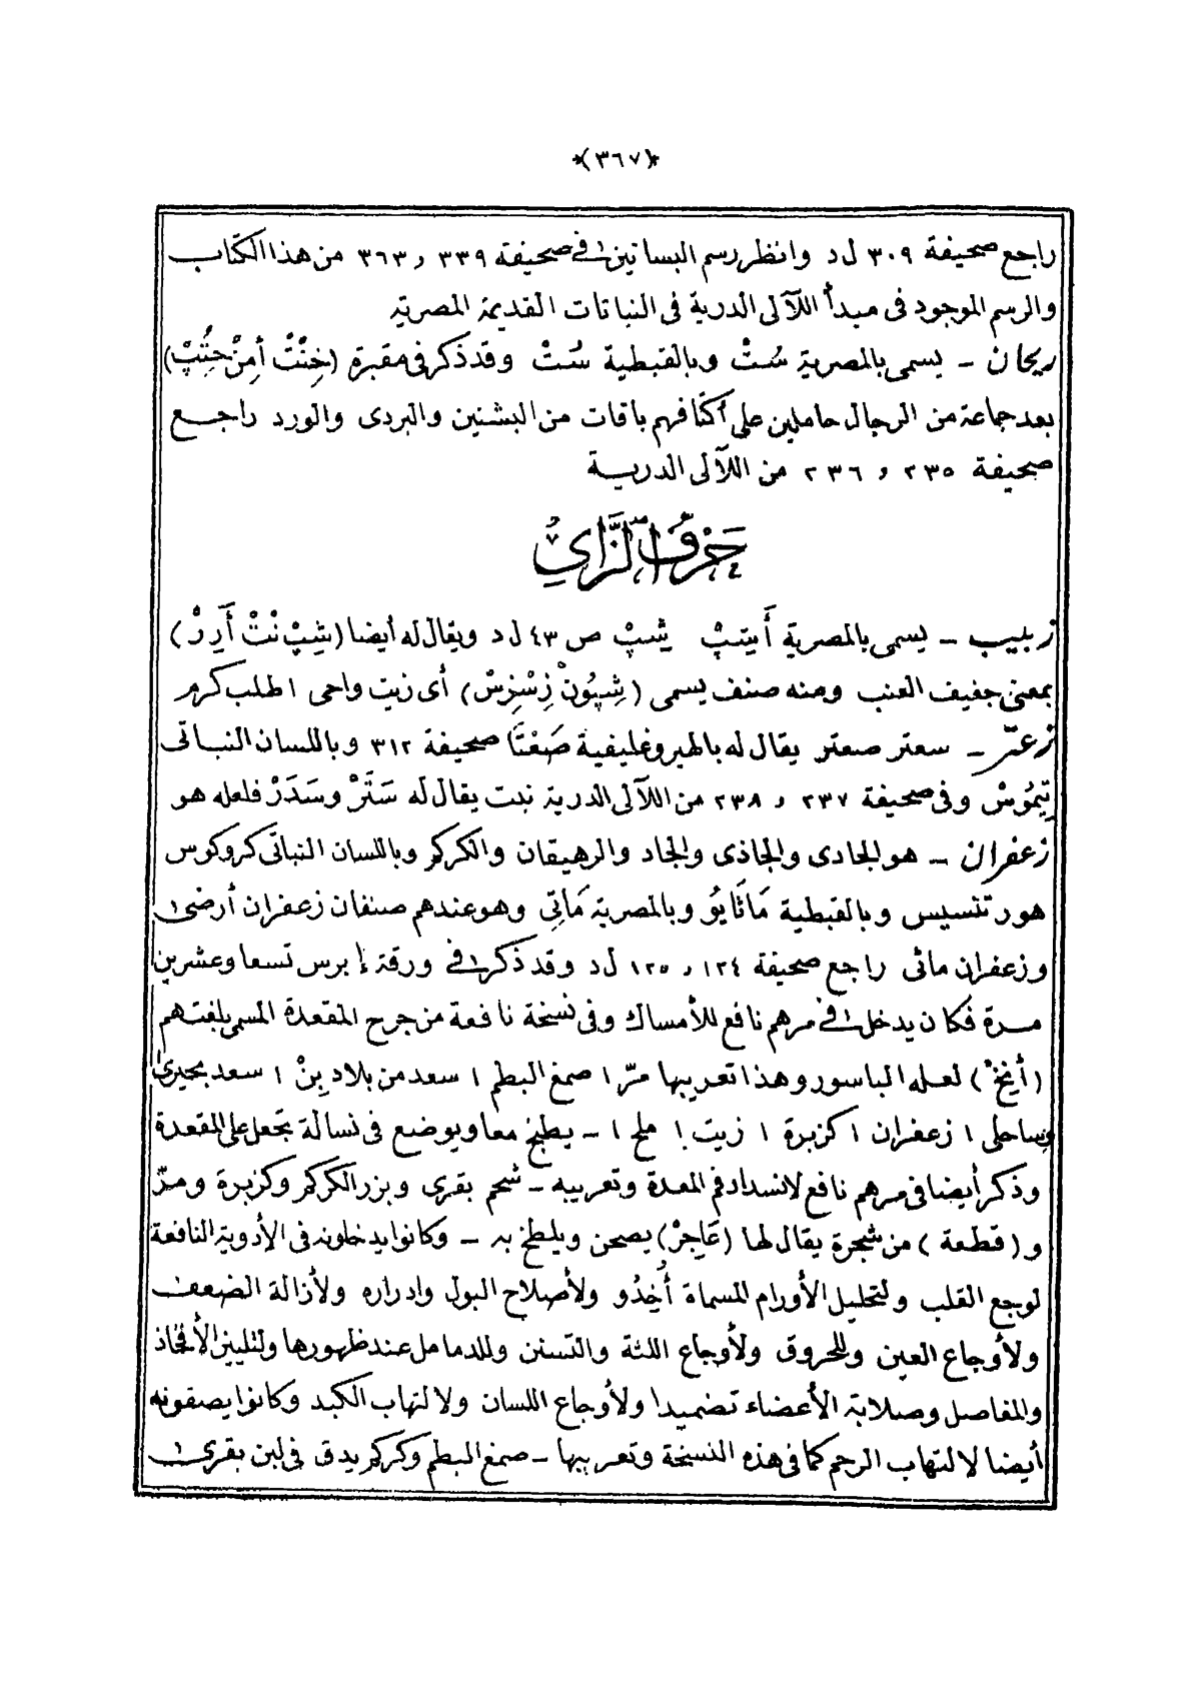 ﴿٣٦٧﴾
راجع صحيفة ٣٠٩ ل د وانظر رسم البساتين في صحيفة ٣٣٩ و ٣٦٣ من هذا الكتاب
والرسم الموجود فى مبدأ اللآلى الدرية فى النباتات القديمة المصرية
ريحان – يسمى بالمصرية سُتْ وبالقبطية سُتْ وقد ذكر فى مقبرة (خِنْتْ أمِنْ حِتُبْ)
بعد جماعة من الرجال حاملين على أكتافهم باقات من البشنين والبردى والورد راجع
صحيفة ٢٣٥ و ٢٣٦ من اللآلى الدرية
حَرْفُ الزَّاي
زبيب – يسمى بالمصرية أَبْتِبْ شِبْ ص ٤٣ ل د ويقال له أيضا (شِبْ نْتْ أَرِرْ)
بمعنى جفيف العنب ومنه صنف يسمى (شِبُونْ زِسْزِسْ) أى زبيت واحى اطلب كرم
زعتر – سعتر صعتر يقال له بالهيروغليفية صَعْتَا صحيفة ٣١٢ وباللسان النباتى
تِيمُوسْ وفى صحيفة ٢٣٧ و ٢٣٨ من اللآلى الدرية نبت يقال له سَتَرْ وسَدَرْ فلعله هو
زعفران – هو الجادى والجاذى والجاد والرهيقان والكركم وباللسان النباتى كروكوس
هورتنسيس وبالقبطية مَاتَايُو وبالمصرية مَاتِي وهو عندهم صنفان زعفران أرضى
وزعفران مائى راجع صحيفة ١٢٤ و ١٢٥ ل د وقد ذكر في ورقة إبرس تسعا وعشرين
مرة فكان يدخل في مرهم نافع للأمساك وفى نسخة نافعة من جرح المقعدة المسمى بلغتهم
(أنِخْ) لعله الباسور وهذا تعريبها مرّ ١ صمغ البطم ١ سعد من بلاد بِنْ ١ سعد بحيرى
وساحلى ١ زعفران ١ كزبرة ١ زيت ١ ملح ١ – يطبخ معا ويوضع فى نسالة تجعل على المقعدة
وذكر أيضا فى مرهم نافع لانسداد فم المعدة وتعريبه – شحم بقرى وبزر الكركم وكزبرة ومرّ
و (قطعة) من شجرة يقال لها (عَاجِرْ) يصحن ويلطخ به – وكانوا يدخلونه فى الأدوية النافعة
لوجع القلب ولتحليل الأورام المسماة أُخِدُو ولأصلاح البول وادراره ولأزالة الضعف
ولأوجاع العين وللحروق ولأوجاع اللثة والتسنن وللدمامل عند ظهورها ولتليين الأفخاذ
والمفاصل وصلابة الأعضاء تضميدا ولأوجاع اللسان ولالتهاب الكبد وكانوا يصفونه
أيضا لالتهاب الرحم كما فى هذه النسخة وتعريبها – صمغ البطم وكركم يدق فى لبن بقرى